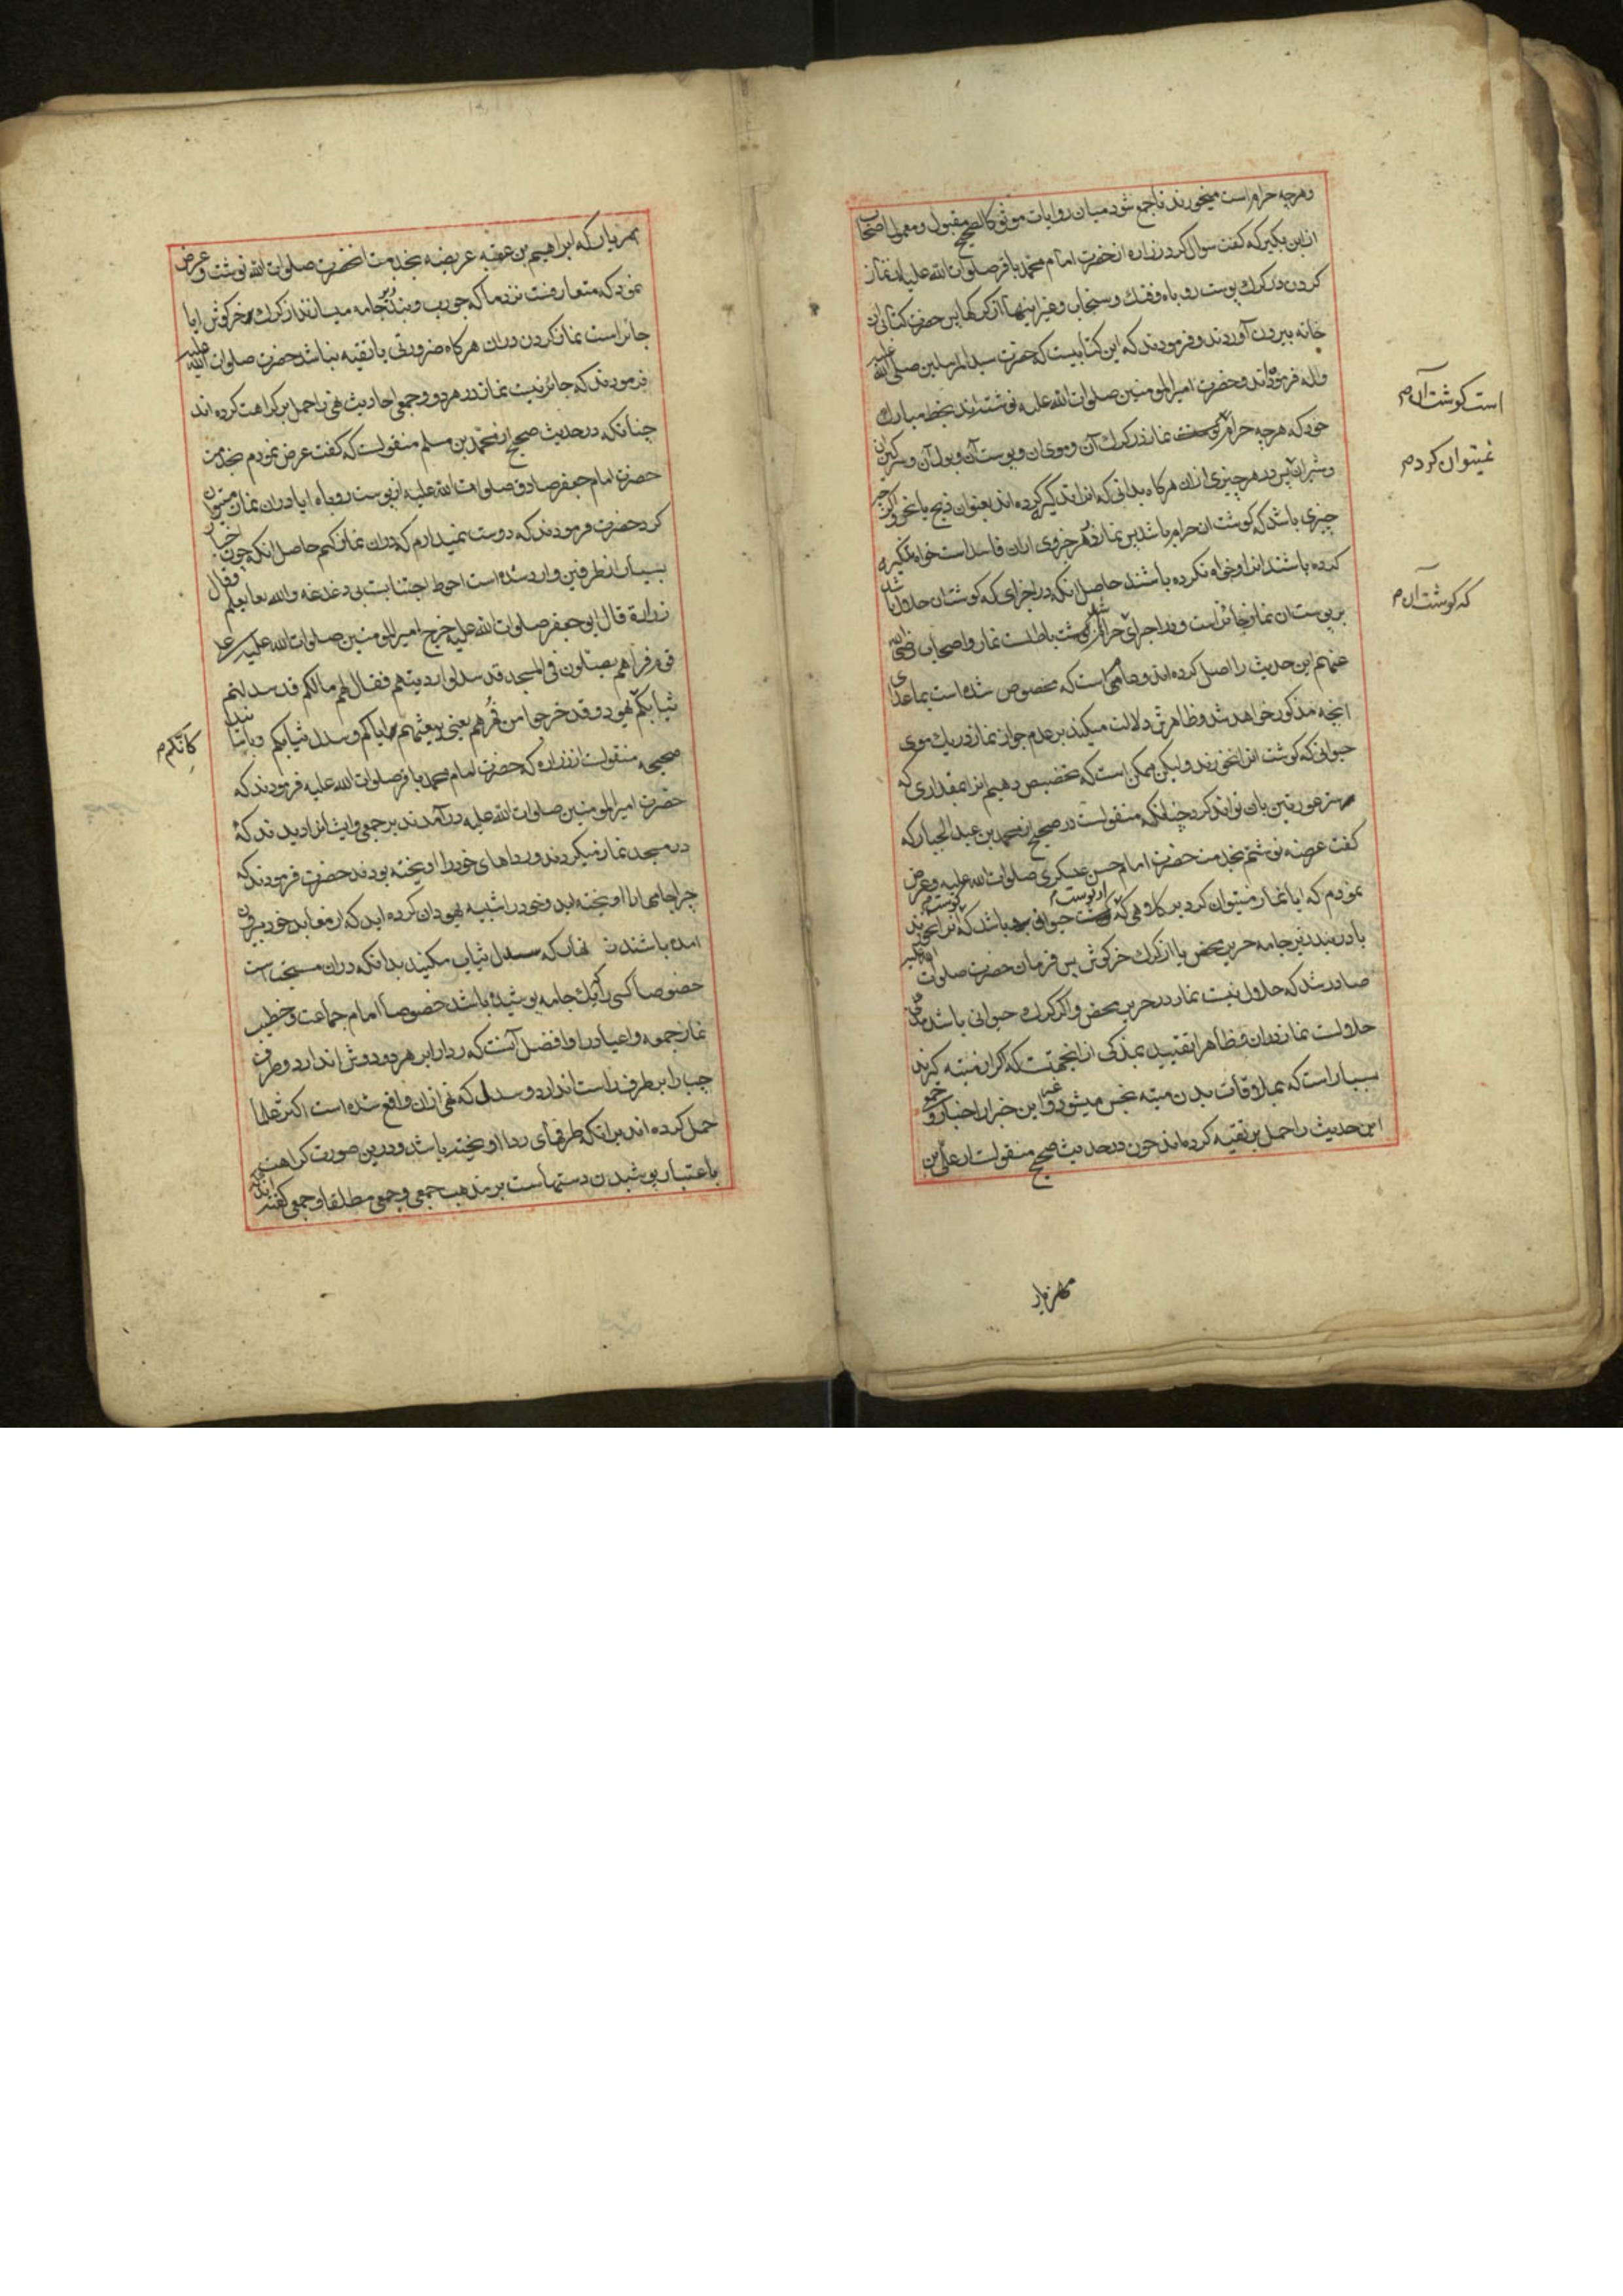 وهرچه حرام است میخورند تا جمع شود میان روایات موثق کالصحیح مقبول ومعمول اصحاب
از ابن بکیر که گفت سوال کرد زراره از حضرت امام محمد باقر صلوات الله علیه از نماز
کردن در کرک پوست روباه وفنک وسنجاب وغیر اینها از کرکها پس حضرت کتابی از
خانه بیرون آوردند وفرمودند که این کتابیست که حضرت سید المرسلین صلی الله علیه
واله فرموده اند وحضرت امیر المومنین صلوات الله علیه نوشته اند بخط مبارک
خود که هرچه حرام نماز در کرک آن وموی ان وپوست آن وبول آن وسرکین
است کوشت آن م
وشیر ان پس در هر چیزی ازان هرکاه بدانی که انرا تذکیه کرده اند بعنوان ذبح یا نحر واکر
نمیتوان کرد م
چیزی باشد که کوشت ان حرام باشد پس نماز در هر جزوی ازان فاسد است خواه تذکیه
کرده باشند انرا وخواه نکرده باشند حاصل انکه در اجزای که کوشت ان حلال باشد
که کوشت آن م
بر پوست ان نماز جائز است ودر اجزای حرام کوشت باطلست نماز واصحاب رضی الله
عنهم این حدیث را اصل کرده اند وعامی است که مخصوص شده است بماعدای
انچه مذکور خواهد شد وظاهرش دلالت میکند بر عدم جواز نماز در یک موی
حیوانی که کوشت انرا نخورند ولیکن ممکن است که تخصیص دهیم انرا بمقداری که
ستر عورتین بان تواند کرد چنانکه منقولست در صحیح از محمد بن عبد الجبار که
کفت عریضه نوشتم بخدمت حضرت امام حسن عسکری صلوات الله علیه وعرض
نمودم که ایا نماز میتوان کرد بر کلاهی که حیوانی باشد که انرا نخورند
یا در بند زیر جامه حریر محض یا از کرک خرکوش پس فرمان حضرت صلوات الله علیه
صادر شد که حلال نیست نماز در حریر محض واکر کرک حیوانی باشد مذکی
حلالست نماز دران وظاهرا تقیید بمذکی از انجهتست که اکر از میته کیرند
بسیار است که بملاقات بدن میته نجس میشود واین خبر از اخبار
این حدیث را حمل بر تقیه کرده اند چون در حدیث صحیح منقولست از علی بن
مهزیار
مهریار که ابراهیم بن عقبه عریضه بخدمت انحضرت صلوات الله نوشت وعرض
نمود که متعارفست نزد ما که جورب وبند زیر جامه میسازند از کرک خرکوش ایا
جائز است نماز کردن دران هرکاه ضرورتی یا تقیه نباشد حضرت صلوات الله علیه
فرمودند که جائز نیست نماز در هر دو وجمعی احادیث نهی را حمل بر کراهت کرده اند
چنانکه در حدیث صحیح از محمد بن مسلم منقولست که کفت عرض نمودم بخدمت
حضرت امام جعفر صادق صلوات الله علیه از پوست روباه ایا دران نماز میتوان
کرد حضرت فرمودند که دوست نمیدارم که دران نماز کنم حاصل انکه چون اخبار
بسیار از طرفین وارد شده است احوط اجتنابست بی دغدغه والله تعالی یعلم وقال
زرارة قال ابو جعفر صلوات الله علیه خرج امیر المومنین صلوات الله علیه علی
قوم فرآهم یصلون فی المسجد قد سدلوا اردیتهم فقال لهم مالکم قد سدلتم
ثیابکم یهود وقد خرجوا من فهرهم یعنی بیعتهم ایاکم وسدل ثیابکم وباسناد
کانکم م
صحیحه منقولست از زراره که حضرت امام محمد باقر صلوات الله علیه فرمودند که
حضرت امیر المومنین صلوات الله علیه در آمدند بر جمعی وایشان را دیدند که
در مسجد نماز میکردند ورداهای خود را اویخته بودند حضرت فرمودند که
چرا جامها را اویخته اید وخود را شبیه یهودان کرده اید که از معابد خود بیرون
امده باشند زنهار که سدل ثیاب مکنید بدانکه دران مستحب است
خصوصا کسی را که یک جامه پوشیده باشد خصوصا امام جماعت وخطیب
نماز جمعه واعیاد را وافضل آنست که ردا را بر هر دو دوش اندازد وطرف
چپ را بر طرف راست اندازد وسدل که نهی ازان واقع شده است اکثر علما
حمل کرده اند برانکه طرفهای ردا اویخته باشد ودرین صورت کراهت
باعتبار پوشیدن دستهاست بر مذهب جمعی وجمعی مطلقا وجمعی کفته اند